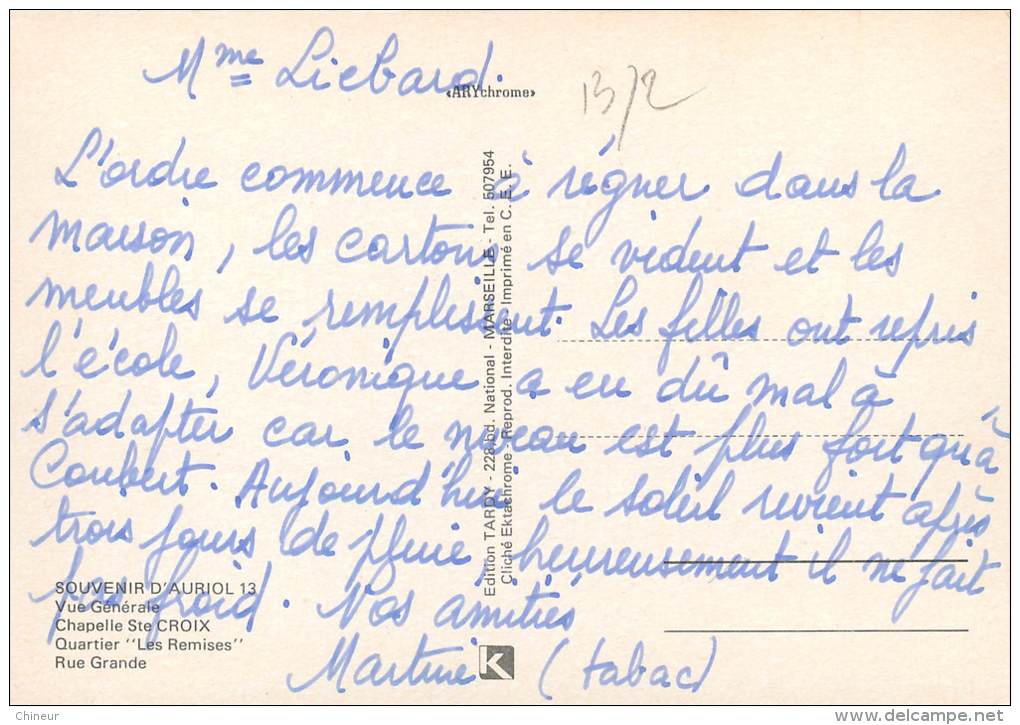 Mme Liebard.
«ARYchrome»
13/2
L'ordre commence à régner dans la
maison, les cartons se vident et les
meubles se remplissent. Les filles ont repris
l'école, Véronique a eu dû mal à
s'adapter car le niveau est plus fort qu'à
Coubert. Aujourd'hui le soleil revient après
trois jours de pluie, heureusement il ne fait
pas froid. Nos amitiés
Martine (tabac)
Edition TARDY - 228, bd. National - MARSEILLE - Tel. 507954
Cliché Ektachrome - Reprod. Interdite - Imprimé en C.E.E.
SOUVENIR D'AURIOL 13
Vue Générale
Chapelle Ste CROIX
Quartier "Les Remises"
Rue Grande
K
Chineur
www.delcampe.net